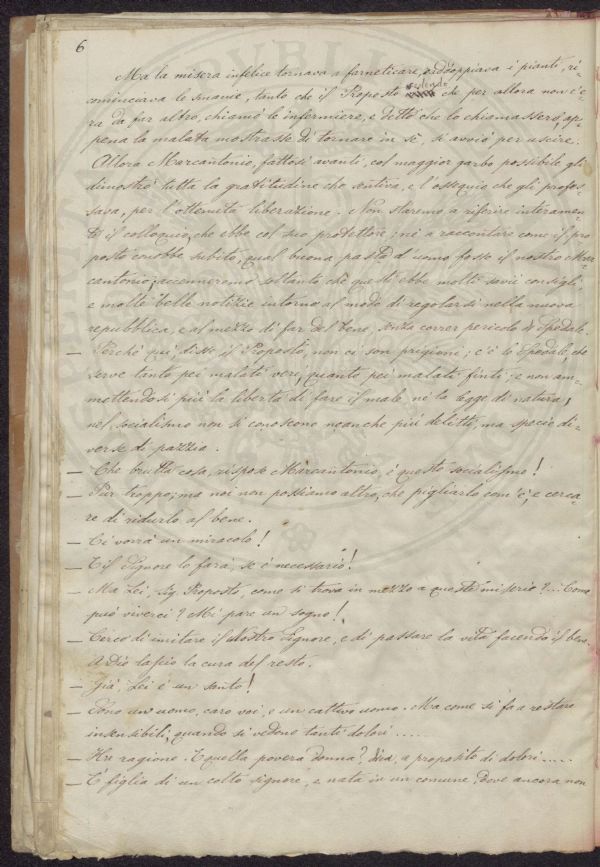 6
Ma la misera infelice tornava a farneticare, raddoppiava i pianti, ri-
cominciava le smanie, tanto che il Proposto vedendo che per allora non c'e-
ra da far altro, chiamò le infermiere, e detto che lo chiamassero, ap-
pena la malata mostrasse di tornare in sè, si avviò per uscire.
Allora Marcantonio, fattosi avanti, col maggior garbo possibile gli
dimostrò tutta la gratitudine che sentiva, e l'ossequio che gli profes-
sava, per l'ottenuta liberazione. Non staremo a riferire interamen-
te il colloquio, che ebbe col suo protettore; nè a raccontare come il pro
posto conobbe subito, qual buona pasta d'uomo fosse il nostro Mar-
cantonio; accenneremo soltanto che questi ebbe molti savii consigli,
e molte belle notizie intorno al modo di regolarsi nella nuova
repubblica, e al mezzo di far del bene, senza correr pericolo di Spedale.
— Perchè quì, disse il Proposto, non ci son prigioni; c'è lo Spedale, che
serve tanto pei malati veri, quanto pei malati finti; e non am-
mettendosi più la libertà di fare il male, nè la legge di natura,
nel socialismo non si conoscono neanche più delitti, ma specie di-
verse di pazzia.
— Che brutta cosa, rispose Marcantonio, è questo socialismo!
— Pur troppo; ma noi non possiamo altro, che pigliarlo com'è, e cerca-
re di ridurlo al bene.
— Ci vorrà un miracolo!
— E il Signore lo farà, se è necessario!
— Ma Lei, Sig. Proposto, come si trova in mezzo a queste miserie?... Come
può viverci? Mi pare un sogno!
— Cerco di imitare il Nostro Signore, e di passare la vita facendo il bene.
A Dio lascio la cura del resto.
— Già, Lei è un santo!
— Sono un uomo, caro voi, e un cattivo uomo. Ma come si fa a restare
insensibili, quando si vedono tanti dolori.....
— Ha ragione. E quella povera donna? dica, a proposito di dolori.....
— È figlia di un colto signore, e nata in un comune, dove ancora non